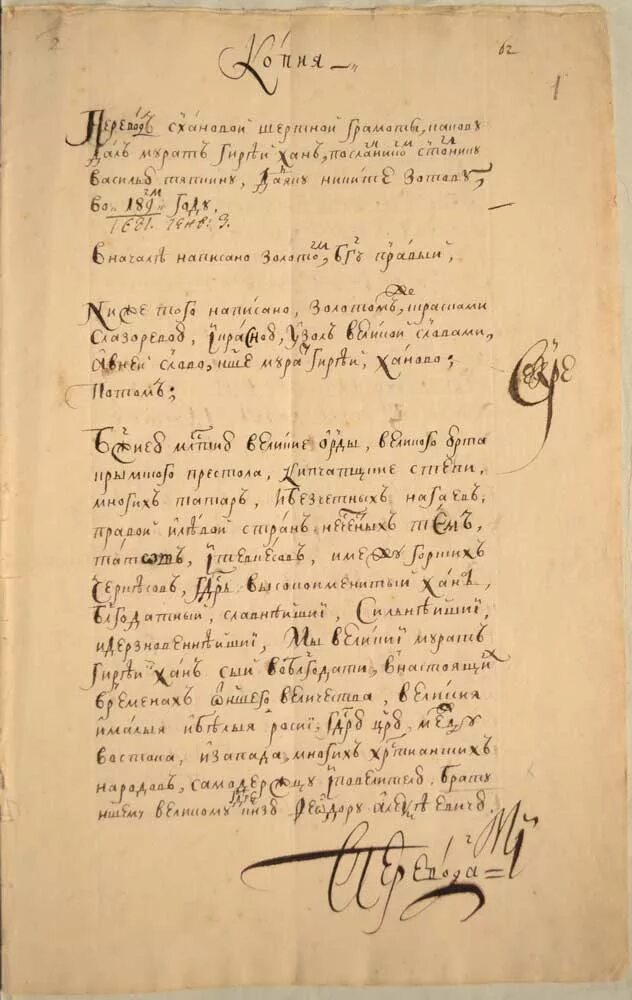 2
62
1
Копия
Переводъ схановой шертной грамоты, какову
далъ муратъ гирѣй ханъ, посланникомъ столнику
василью тяпкину, дьяку никите зотову,
во 189м году,
1681. генв: 3.
вначалѣ написано золотом, бгъ правый,
Ниже того написано, золотомъ же, красками
слазоревою, икрасною, узолъ великой словами,
авней слово, нше мурат гирѣй, ханово;
потомъ;
Бжиею млстию великие орды, великого юрта
крымского престола, кипчатцкие степи,
многихъ татаръ, ибезчетныхъ нагаевъ,
правой илѣвой странъ несчетныхъ тем,
татъ, итевкесовъ, имежду горскихъ
черкесовъ, гдрь высокоименитый ханъ,
блгодатный, славнѣйший, сильнѣйший,
идерзновеннѣйший, мы великий муратъ
гирѣй ханъ сый воблгодати, внастоящих
временахъ ѿ ншего величества, великия
ималыя ибѣлыя росии, гдрю црю, между
востока, изапада, многихъ христианскихъ
народовъ, самодержцу иповелителю, брату
ншему великому кнзю феѡдору алеѯѣевичю,
Перевода =